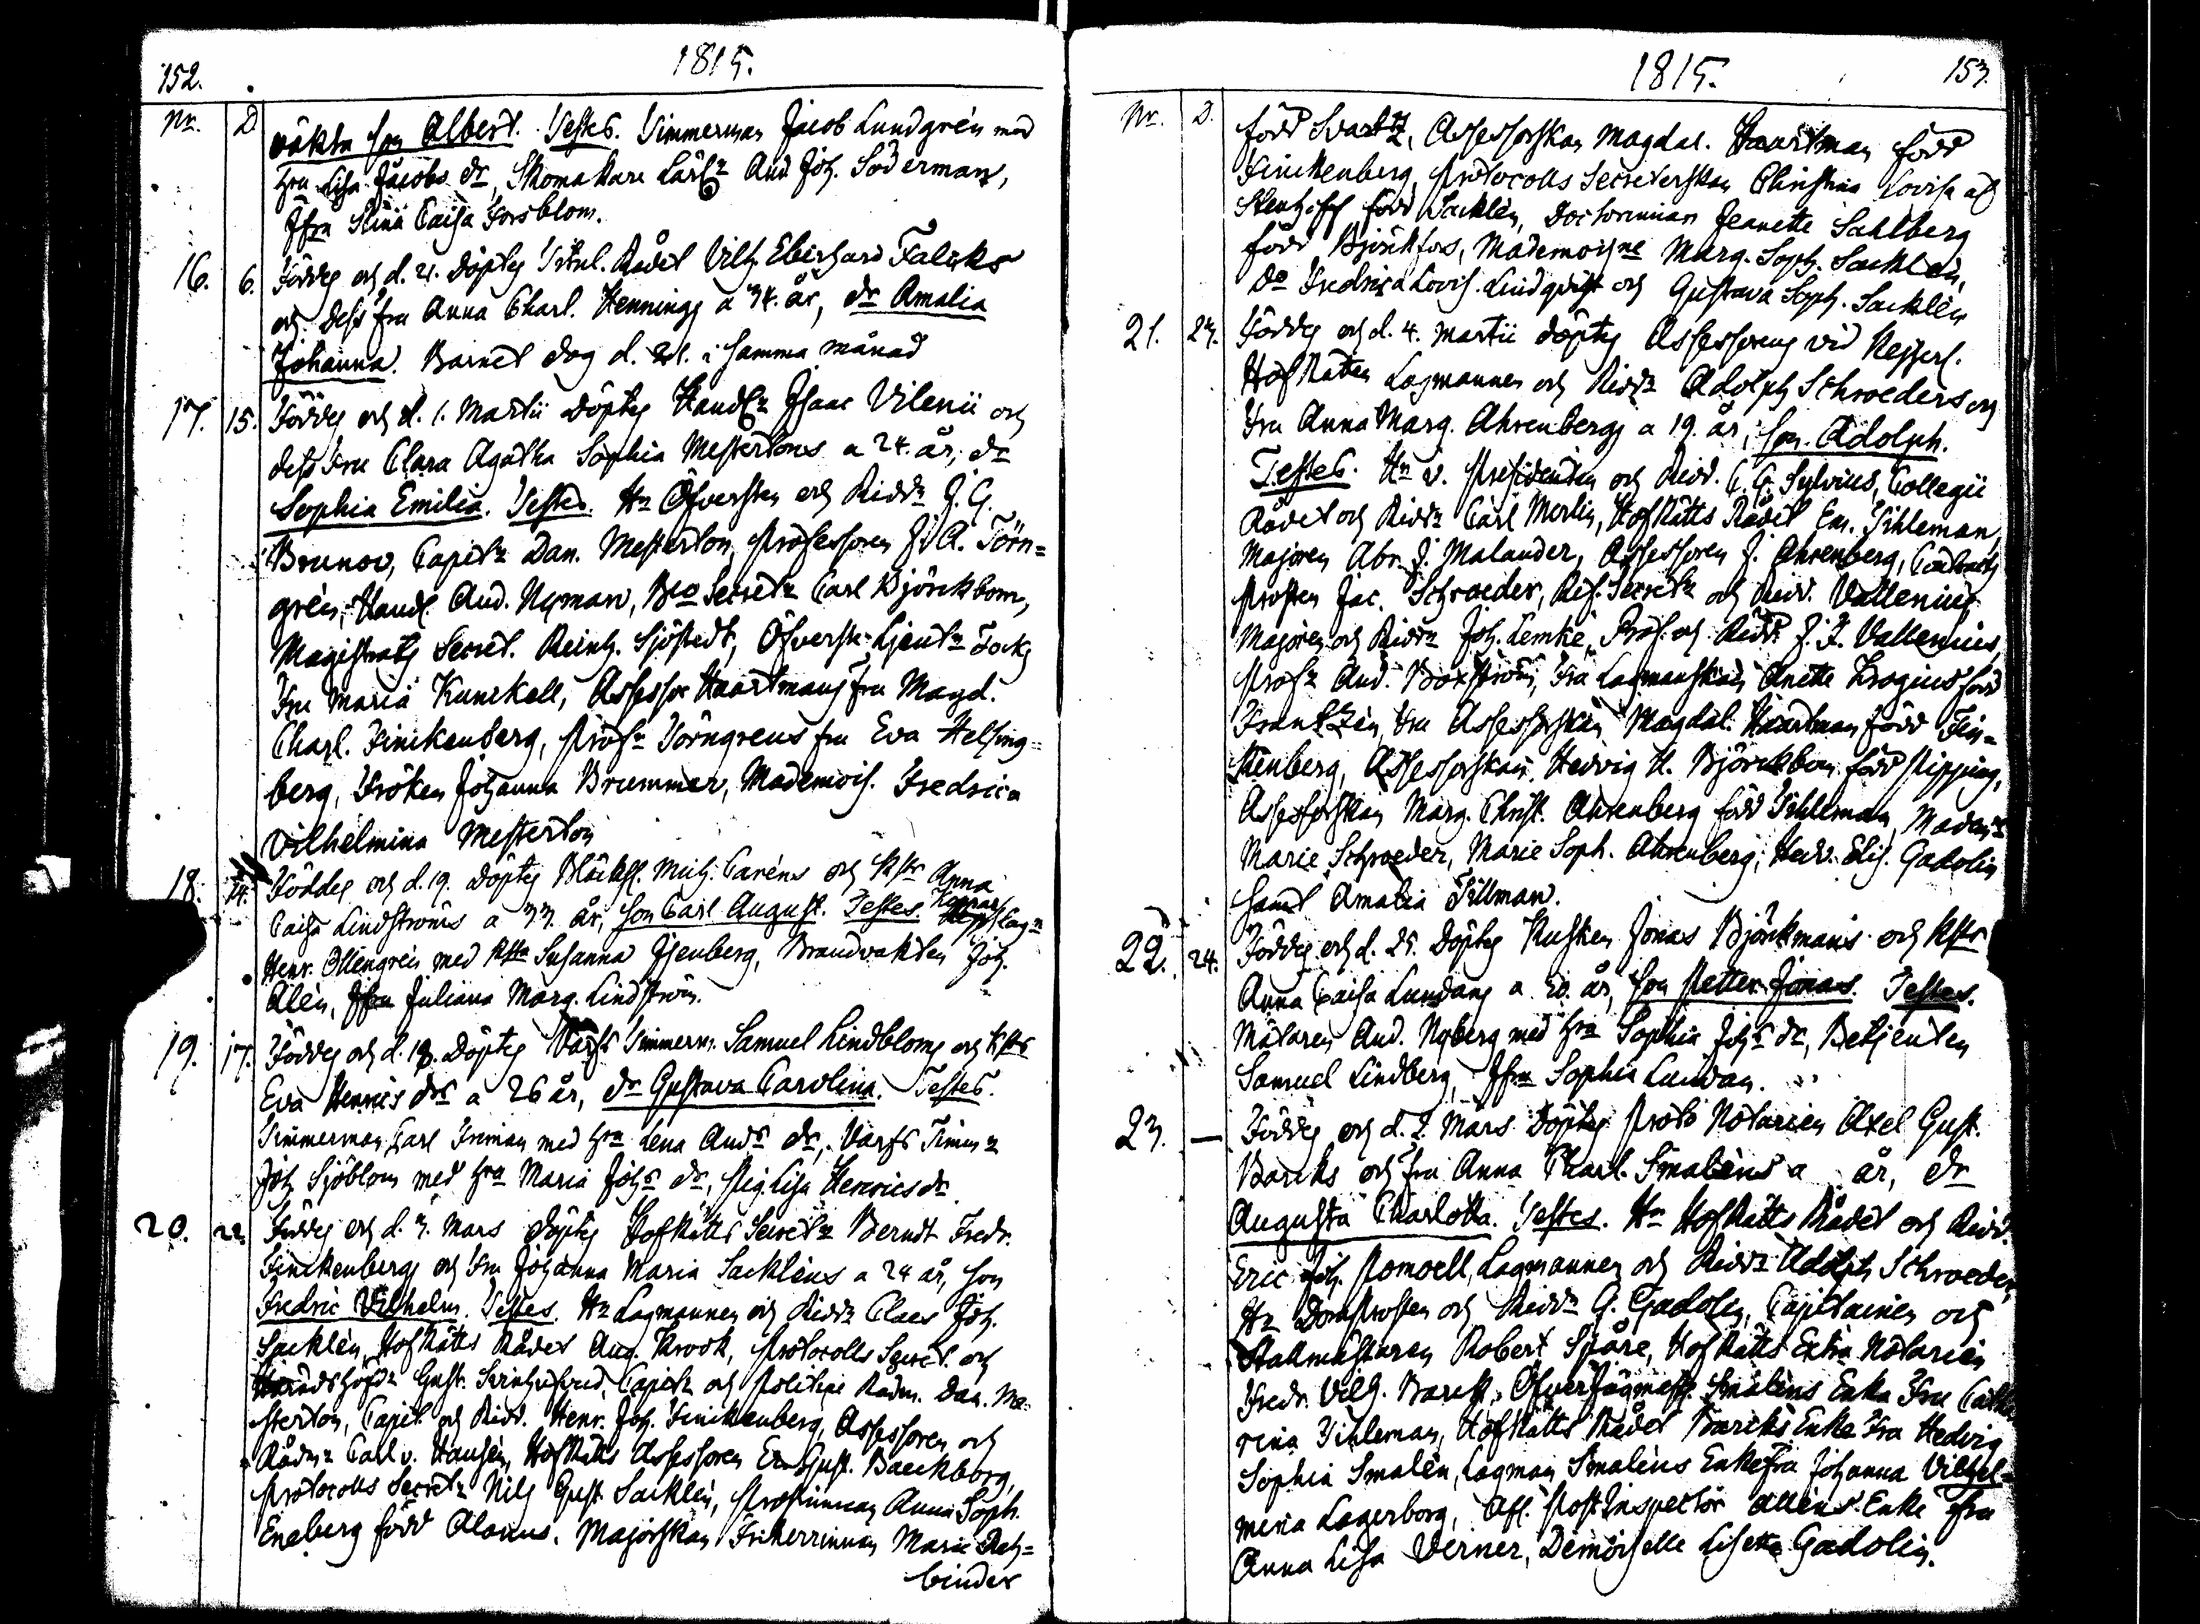 152.
1815.
Nr. D
oäkta son Albert. Testes. Timmerman Jacob Lundgrén med
hru Lisa Jacobs dr, Skomakare Lärl. And. Joh. Söderman,
Jfru Stina Caisa Forsblom.
16. 6. Föddes och d. 21. döptes Titul. Rådet Vilh. Eberhard Falcks
och dess fru Anna Charl. Hennings a 34. år, dr Amalia
Johanna. Barnet dog d. 21. i samma månad
17. 15. Föddes och d. 1. Martii döptes Handl. Isaac Vilenii och
dess Fru Clara Agatha Sophia Mestertons a 24. år, dr
Sophia Emilia. Testes. Hr Öfversten och Riddr J. G.
Brunov, Capitn Dan. Mesterton, Professoren J. A. Törn=
grén, Handl. And. Nyman, Secretr Carl Björckbom,
Magistrats Secret. Reinh. Sjöstedt, Öfverste Ljeutn Tocks
Fru Maria Kunckell, Assessor Haartmans fru Magd.
Charl. Finckenberg, Profr Törngrens fru Eva Helsing=
berg, Fröken Johanna Brummer, Mademois. Fredrica
Vilhelmina Mesterton
18. 14. Föddes och d. 19. döptes Mich. Caréns och hstr Anna
Caisa Lindströms a 33. år, son Carl August. Testes. Kopparslagr
Henr. Ollengrén med hstr Susanna Isenberg, Brandvakten Joh.
Alén, Jfru Juliana Marg. Lindström.
19. 17. Föddes och d. 18. döptes Varfs Timmerm. Samuel Lindbloms och hstr
Eva Henrics drs a 26 år, dr Gustava Carolina. Testes.
Timmerman Carl Friman med hru Lena Ands dr, Varfs Timmr
Joh. Sjöblom med hru Maria Johs dr, Pig. Lisa Henrics dr.
20. 22. Föddes och d. 3. Mars döptes HofRätts Secretr Berndt Fredr.
Finckenbergs och Fru Johanna Maria Sackléns a 24 år, son
Fredric Vilhelm. Testes. Hr Lagmannen och Riddr Claes Joh.
Sacklén, HofRätts Rådet Aug. Krook, Protocolls Secret. och
Häradshöfd. Gust. Svinhufvud, Capitn och Politie Rådm. Dan. Me-
sterton, Capit. och Ridd. Henr. Joh. Finckenberg, Assessoren och
Rådmr Carl v. Hausen, HofRätts Assessoren Er. Gust. Baeckborg,
Protocolls Secretr Nils Gust. Sacklén, Prostinnan Anna Soph.
Eneberg född Alanus, Majorskan Friherrinnan Marie Reh=
binder
1815.
153.
Nr. D.
född Svartz, Assessorskan Magdal. Haartman född
Finckenberg, Protocolls Secreterskan Christina Lovisa af
Stenhoff född Sacklén, Doctorinnan Jeanette Sahlberg
född Björkfors, Mademoisne Marg. Soph. Sacklén,
Do Fredrica Lovis. Lindqvist och Gustava Soph. Sacklén
21. 23. Föddes och d. 4. Martii döptes Assessorens vid Kejserl.
HofRätten Lagmannen och Riddr Adolph Schroeders och
Fru Anna Marg. Ahrenbergs a 19. år, son Adolph.
Testes. Hr v. Presidenten och Ridd. C. G. Sylvius, Collegii
Rådet och Riddr Carl Merlin, HofRätts Rådet Em. Tihleman,
Majoren Abr. J. Malander, Assessoren J. Ahrenberg, Contracts
Prosten Jac. Schroeder, Ref. Secretr och Ridd. Vallenius,
Majoren och Riddr Joh. Lemke, Prof. och Ridd. J. F. Vallenius,
Profr And. Boxström, Fru Lagmanskan Anette Krogius född
Frantzén, Fru Assessorskan Magdal. Haartman född Fin=
kenberg, Assessorskan Hedvig H. Björckbom född Pipping,
Assessorskan Marg. Christ. Ahrenberg född Tihleman, Madm
Marie Schroeder, Marie Soph. Ahrenberg, Hedv. Elis. Gadolin
samt Amalia Tillman.
22. 24. Föddes och d. 25. döptes Kusken Jonas Björkmans och hstr
Anna Caisa Lundans a 20. år, son Petter Jonas. Testes.
Målaren And. Nyberg med hru Sophia Johs dr, Betjenten
Samuel Lindberg, Jfru Sophia Lundan.
23. — Föddes och d. 2. Mars döptes Proto Notarien Axel Gust.
Barcks och fru Anna Charl. Smaléns a år, dr
Augusta Charlotta. Testes. Hr HofRätts Rådet och Ridd.
Eric Joh. Pomoell, Lagmannen och Riddr Adolph Schroeder,
Hr Domprosten och Riddr G. Gadolin, Capitainen och
Stallmästaren Robert Spåre, HofRätts Extra Notarien
Fredr. Vilh. Barck, ÖfverJägmest. Smaléns Enka Fru Catha
rina Tihleman, HofRätts Rådet Barcks Enka Fru Hedvig
Sophia Smalén, Lagman Smaléns Enkefru Johanna Vilhel=
mina Lagerborg, Afl. Post Inspector Alléns Enke Fru
Anna Lisa Verner, Demoiselle Lisette Gadolin.